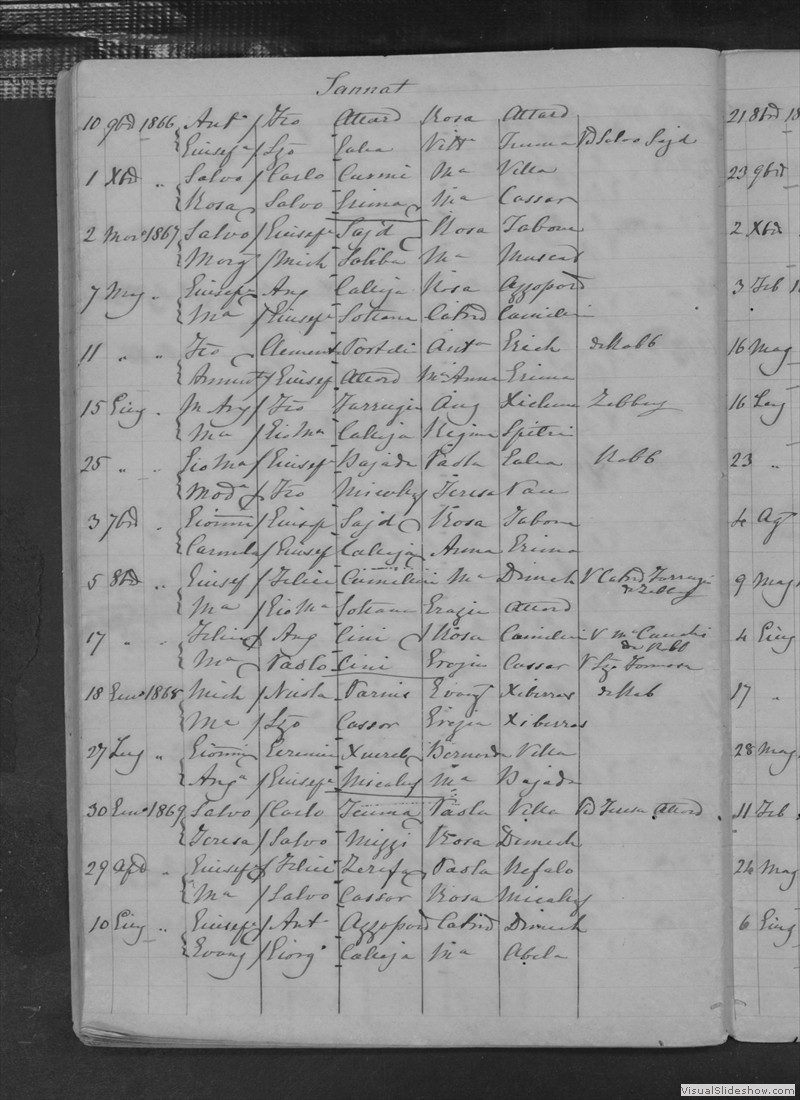 Sannat
10 9bre 1866 Anto / Fro Attard Rosa Attard
Giusepa / Lzo Vitt
1 Xbre " Salvo / Carlo Curmi Ma Villa
Rosa Salvo Grima Ma Cassar
2 1867 Salvo / Giusepe Sajd Rosa Tabone
Marg / Mich Saliba Ma Muscat
7 Mag " Giusepe Ang Calleja Rosa Azzopard
Ma / Giusepe Sultana Catrd Camilleri
11 " " Fro Clement Portelli Anta Grech Rabb
/ Giusep Attard Ma Anna Grima
15 Giug " M Ang / Fro Farrugia Ang Xiclun Zebbug
Ma / Gio Ma Calleja Regina Spiteri
25 " " Gio Ma / Giusepe Bajada Paola Rabb
Moda / Fro Micallef Teresa Pace
3 7bre " Gionni / Giusepe Sajd Rosa Tabone
Carmela / Giusep Calleja Anna Grima
5 8bre " Giusep / Felice Camilleri Ma Dimech V Catrd Farrugia
Zebbug
Ma / Gio Ma Sultana Grazia Attard
17 " " Felice / Ang Cini Rosa Camilleri V
Rabb
Ma Paolo Cini Grazia Cassar V Lzo
18 Genro 1868 Mich / Nicola Parnis Evang Xiberras Rab
Ma / Lzo Cassar Grazia Xiberras
27 Lug " Gionni Geremia Xuereb Bernarda Villa
Anga / Giusepe Micallef Ma Bajada
30 Genro 1869 Salvo / Carlo Paola Villa Vd Teresa Attard
Teresa / Salvo Mizzi Rosa Dimech
29 Apl " Giusepe / Felice Zerafa Paola Refalo
Ma / Salvo Cassar Rosa Micallef
10 Giug " Giusepe / Ant Azzopard Catrd Dimech
Evang / Giorg Calleja Ma Abela
21 8bre
23 9bre
2 Xbre
3 Feb
16 Mag
16 Lug
23 "
4 Ag
9 Mag
4 Giug
17 "
28 Mag
11 Feb
24 Mag
6 Giug
VisualSlideshow.com